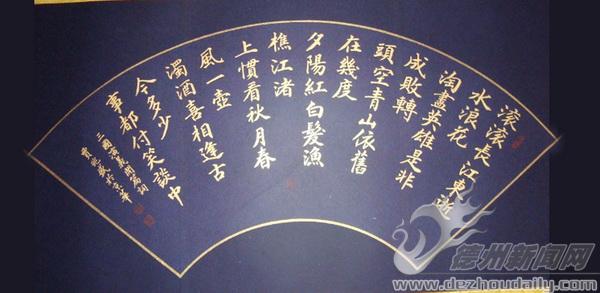 滾滾長江東逝
水浪花
淘盡英雄是非
成敗轉
頭空青山依舊
在幾度
夕陽紅白髮漁
樵江渚
上慣看秋月春
風一壺
濁酒喜相逢古
今多少
事都付笑談中
三國演義開篇詞
於京華
德州新闻网
www.dezhoudaily.com